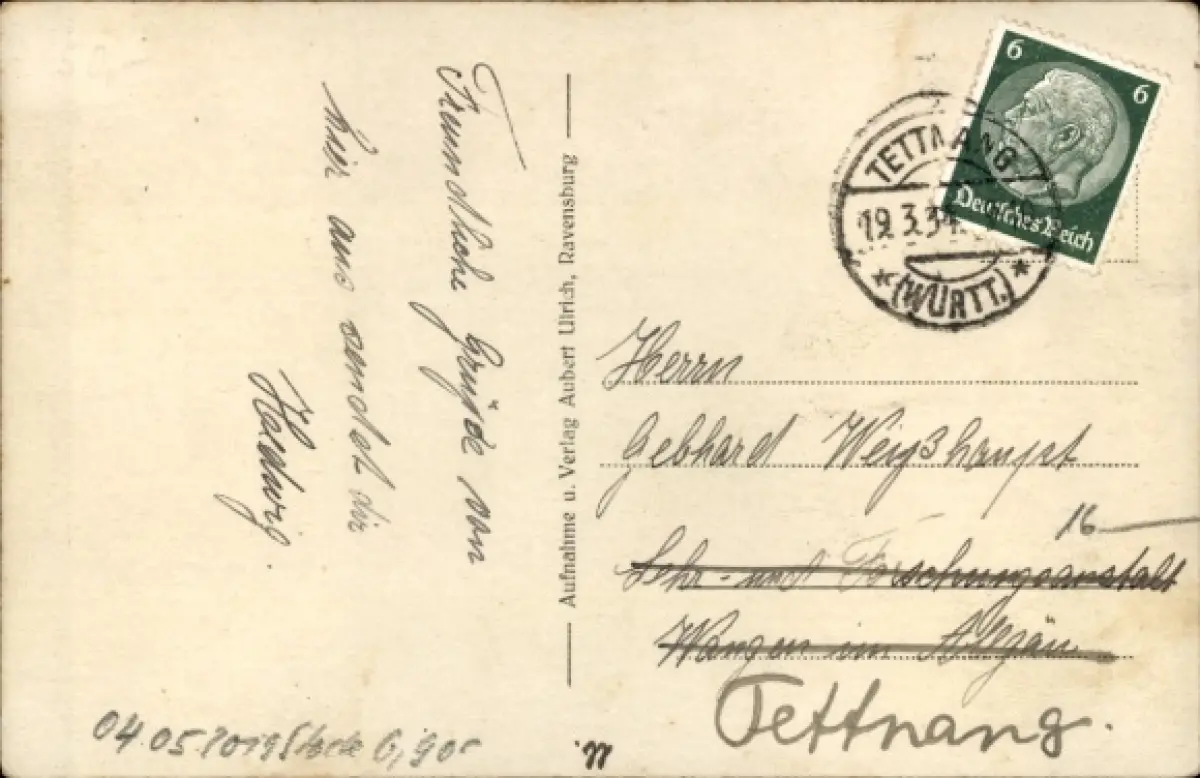 Freundliche Grüße von
hier aus sendet dir
Hedwig.
Aufnahme u. Verlag Aubert Ulrich, Ravensburg
6 6
Deutsches Reich
TETTNANG
19.3.34
(WÜRTT.)
Herrn
Gebhard Weißhaupt
16
Lehr- und Forschungsanstalt
Wangen im Allgäu
Tettnang.
04.05.2019